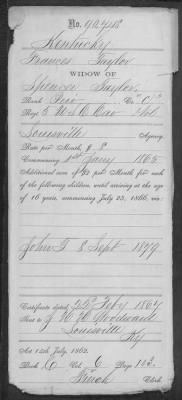 Kentucky
Frances Taylor
WIDOW OF
Spencer Taylor
Rank Co "C"
Reg't 5 U S C Cav Vol
Louisville Agency.
Rate per Month, $ 8
Commencing 1st Jany 1865
Additional sum of $2 per Month for each
of the following children, until arriving at the age
of 16 years, commencing July 25, 1866, viz:
John T 8 Sept 1879
Certificate dated 26th Feby 1867
Sent to J. H. Woodward
Louisville
Ky
Act 14th July, 1862.
Book Vol. 6 Page 153.
Clerk.